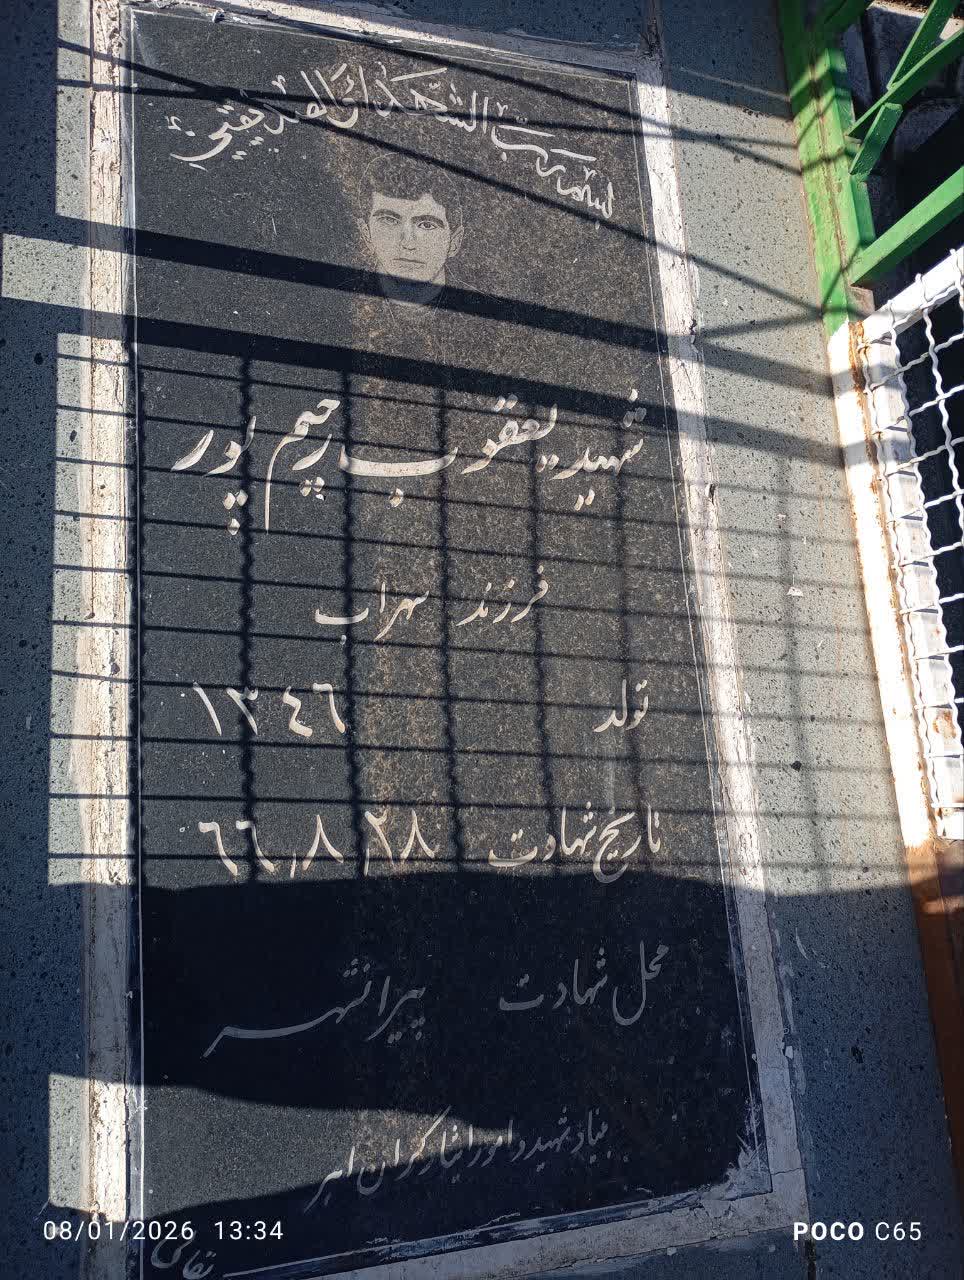 بسم رب الشهداء و الصدیقین
شهید یعقوب رحیم پور
فرزند سهراب
تولد ۱۳۴٦
تاریخ شهادت ۲۸٫۸٫٦٦
محل شهادت پیرانشهر
بنیاد شهید و امور ایثارگران اهر
08/01/2026 13:34
POCO C65